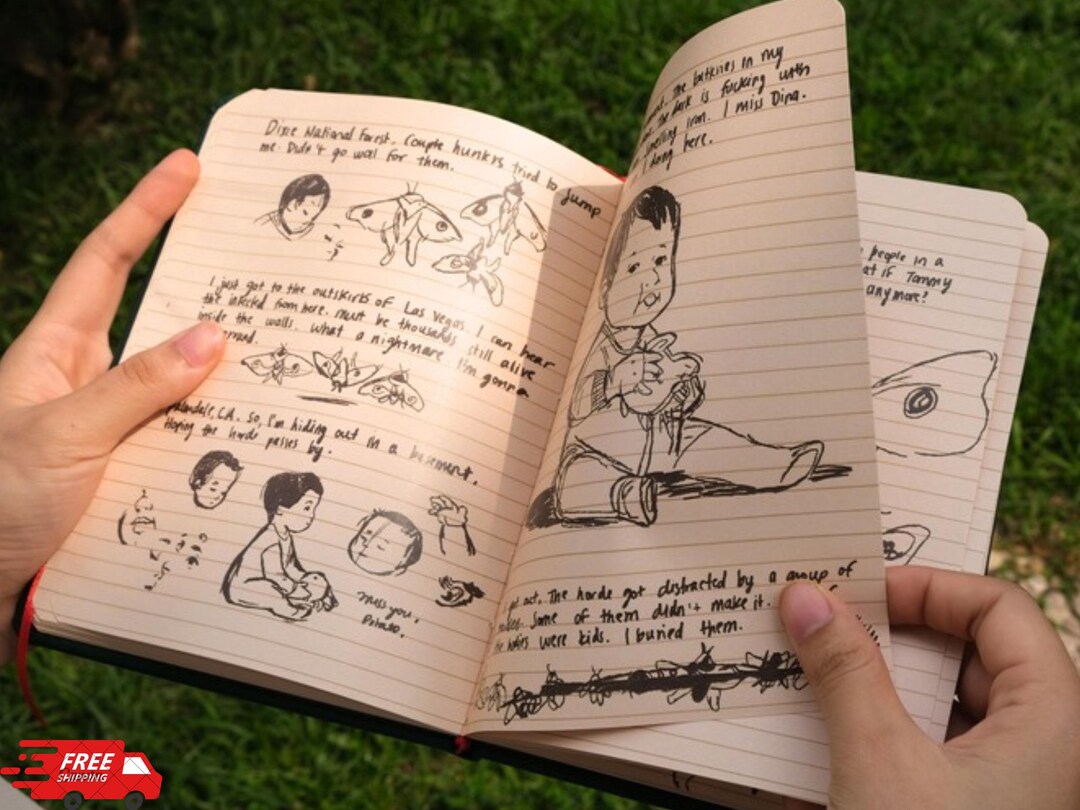 Dixie National Forest. Couple hunters tried to jump
me. Didn't go well for them.
I just got to the outskirts of Las Vegas. I can hear
the infected from here. Must be thousands still alive
inside the walls. What a nightmare. I'm gonna
Palmdale, CA. So, I'm hiding out in a basement.
Hoping the horde passes by.
Miss you,
Potato.
The batteries in my
The dark is fucking with
smelling iron. I miss Dina.
I doing here.
out. The horde got distracted by a group of
Some of them didn't make it.
bodies were kids. I buried them.
people in a
if Tommy
anymore?
FREE
SHIPPING